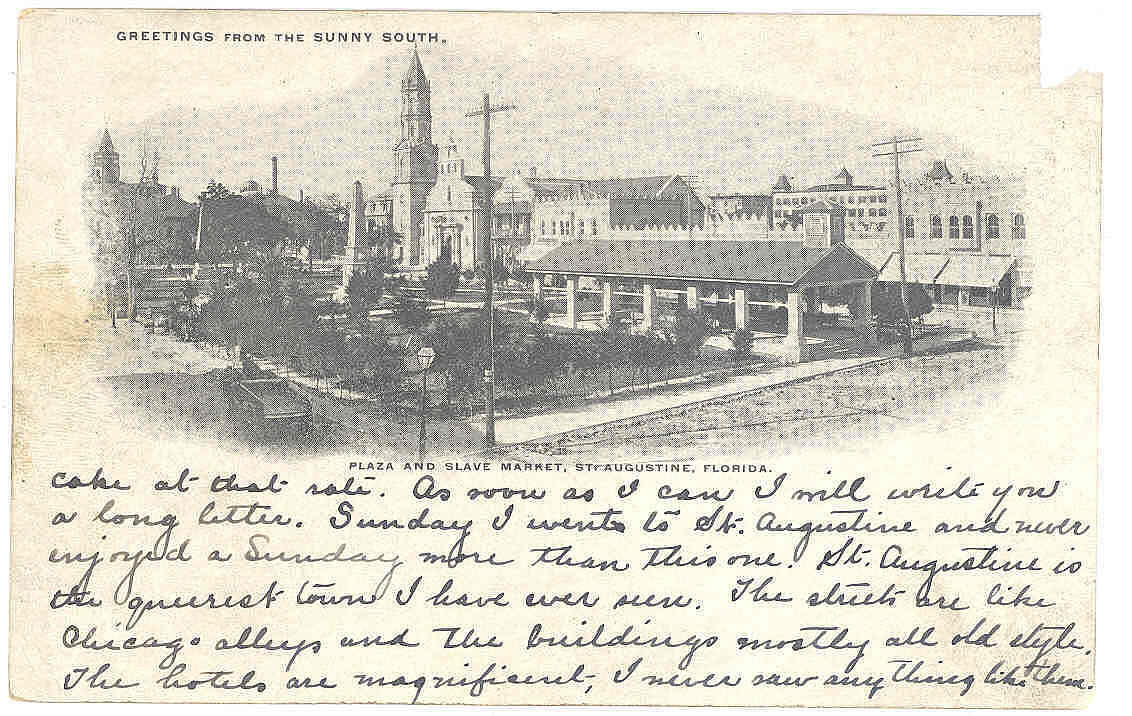 GREETINGS FROM THE SUNNY SOUTH.
PLAZA AND SLAVE MARKET, ST. AUGUSTINE, FLORIDA.
cake at that rate. As soon as I can I will write you
a long letter. Sunday I went to St. Augustine and never
enjoyed a Sunday more than this one. St. Augustine is
the queerest town I have ever seen. The streets are like
Chicago alleys and the buildings mostly all old style.
The hotels are magnificent, I never saw anything like them.